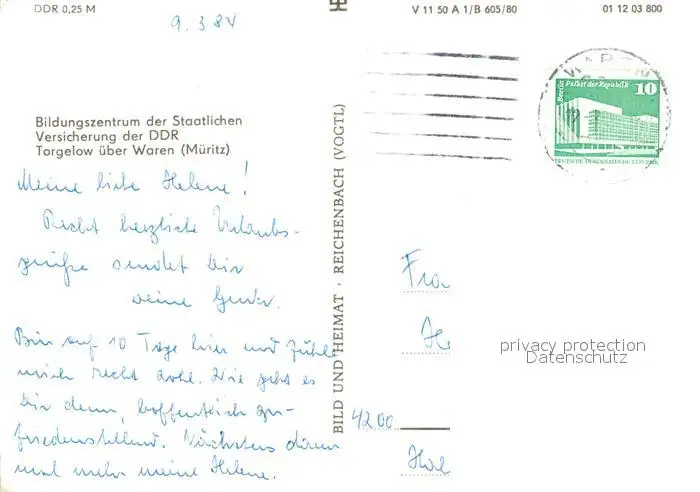 DDR 0,25 M
V 11 50 A 1/B 605/80
01 12 03 800
9. 3 84
Bildungszentrum der Staatlichen
Versicherung der DDR
Torgelow über Waren (Müritz)
Meine liebe Helene!
Recht herzliche Urlaubs-
grüße sendet Dir
Deine
Bin auf 10 Tage hier und fühle
mich recht wohl. Wie geht es
Dir denn, hoffentlich zu-
friedenstellend. Nächstens dann
mal mehr meine Helene.
BILD UND HEIMAT · REICHENBACH (VOGTL)
Berlin Palast der Republik
10
DEUTSCHE DEMOKRATISCHE REPUBLIK
Frau
He
privacy protection
Datenschutz
4200
Hal